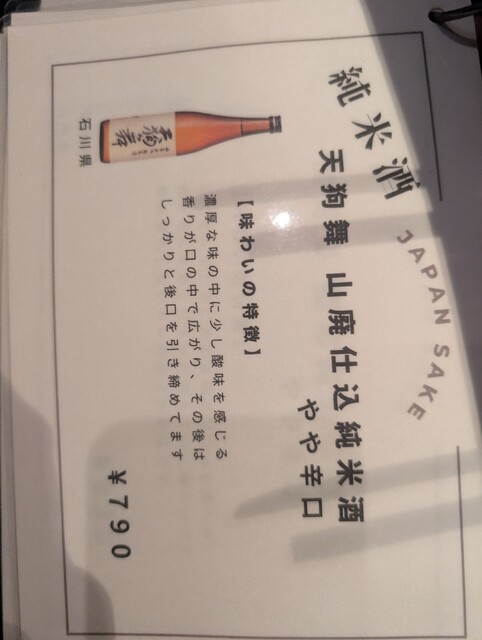 純米酒
JAPAN SAKE
天狗舞 山廃仕込純米酒
やや辛口
【味わいの特徴】
濃厚な味の中に少し酸味を感じる
香りが口の中で広がり、その後は
しっかりと後口を引き締めてます
天狗舞
石川県
￥790